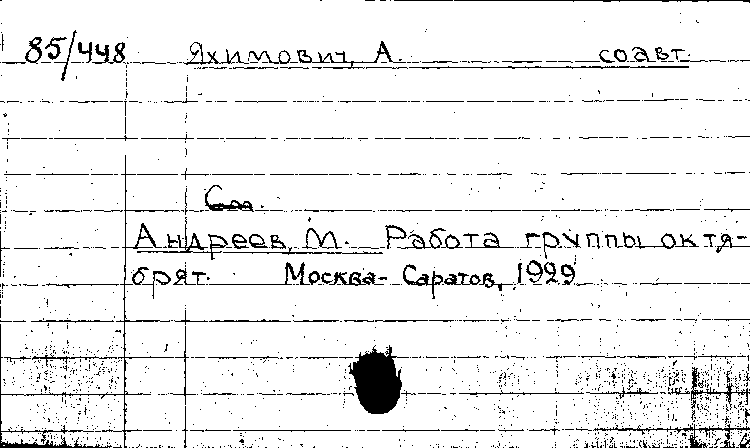 85/448 Яхимович, А. соавт.
См.
Андреев, М. Работа группы октя-
брят. Москва-Саратов, 1929